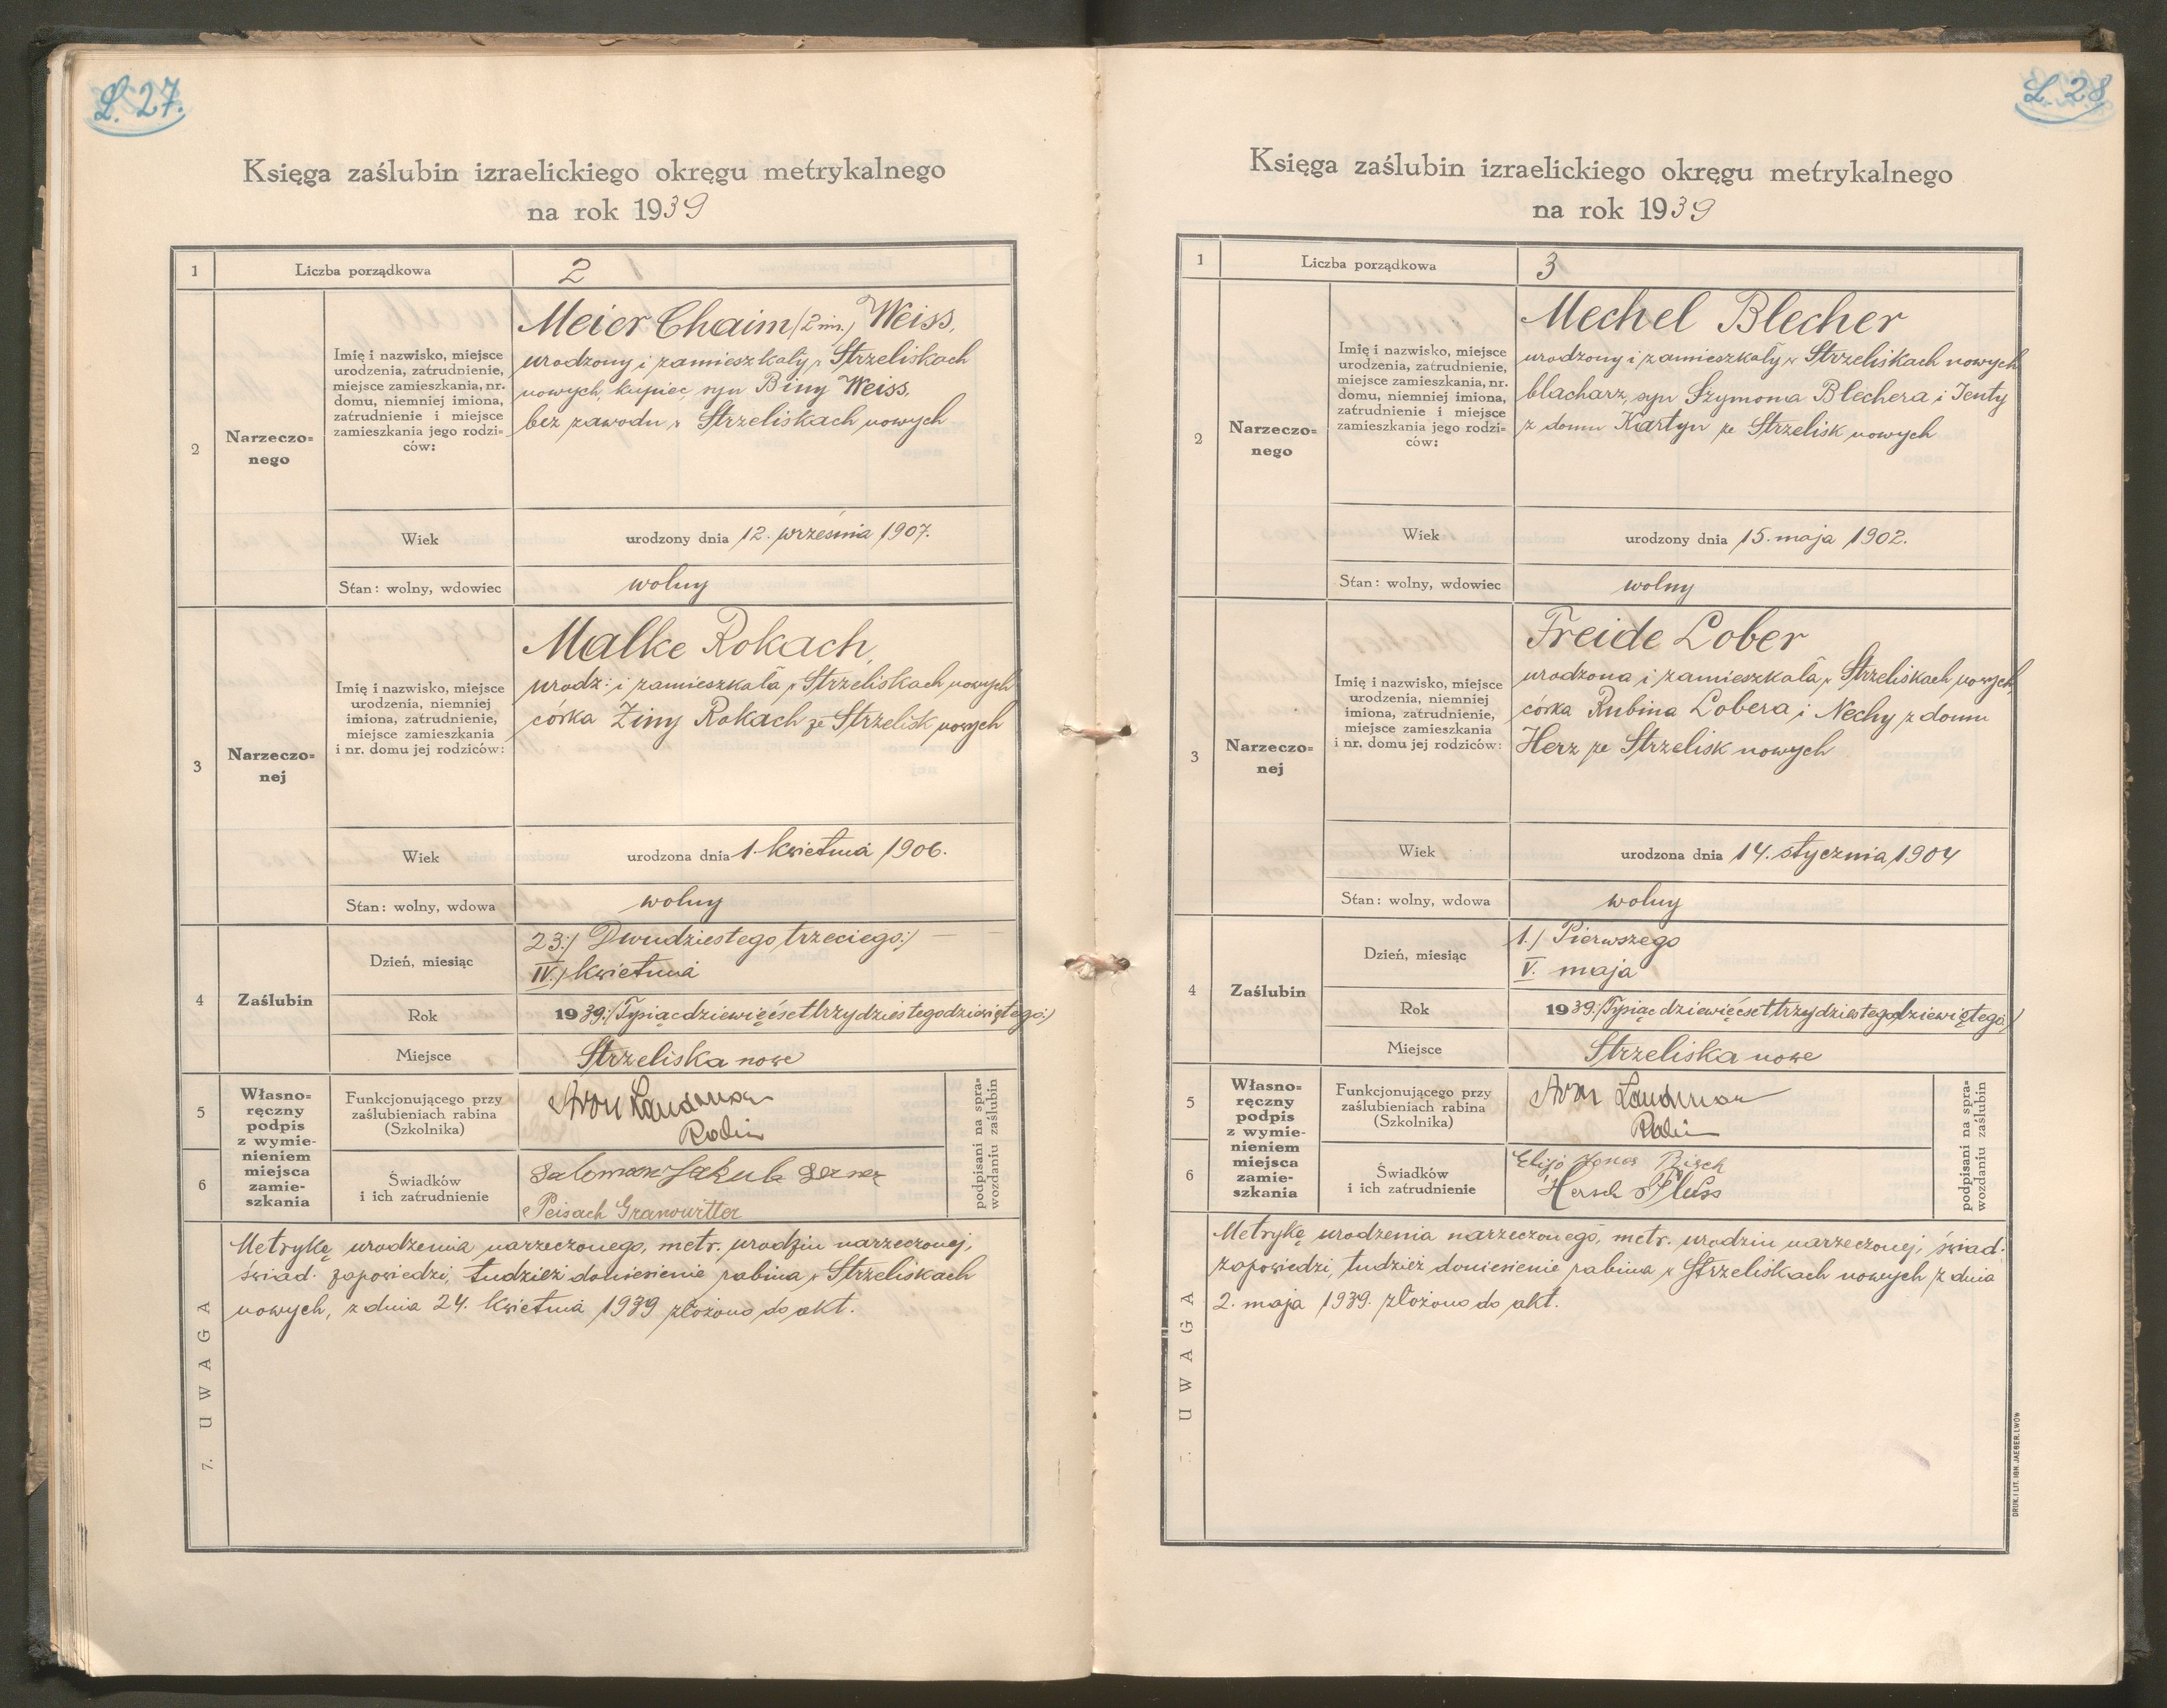 L. 27.
Księga zaślubin izraelickiego okręgu metrykalnego
na rok 1939
1
Liczba porządkowa
2
2
Narzeczo=
nego
Imię i nazwisko, miejsce
urodzenia, zatrudnienie,
miejsce zamieszkania, nr.
domu, niemniej imiona,
zatrudnienie i miejsce
zamieszkania jego rodzi=
ców:
Meier Chaim (2 im.) Weiss,
urodzony i zamieszkały w Strzeliskach
nowych, kupiec, syn Biny Weiss,
bez zawodu w Strzeliskach nowych
Wiek
urodzony dnia 12. września 1907.
Stan: wolny, wdowiec
wolny
3
Narzeczo=
nej
Imię i nazwisko, miejsce
urodzenia, niemniej
imiona, zatrudnienie,
miejsce zamieszkania
i nr. domu jej rodziców:
Malke Rokach,
urodz: i zamieszkała w Strzeliskach nowych
córka Ziny Rokach ze Strzelisk nowych
Wiek
urodzona dnia 1. kwietnia 1906.
Stan: wolny, wdowa
wolny
4
Zaślubin
Dzień, miesiąc
23:/ Dwudziestego trzeciego:/ —
IV./ kwietnia
Rok
1939:/Tysiącdziewięćsettrzydziestegodziewiątego:/
Miejsce
Strzeliska nowe
5
6
Własno=
ręczny
podpis
z wymie=
nieniem
miejsca
zamie=
szkania
Funkcjonującego przy
zaślubieniach rabina
(Szkolnika)
Aron Landman
Rabin
Świadków
i ich zatrudnienie
Salomon Jakub
Peisach
podpisani na spra=
wozdaniu zaślubin
7. UWAGA
Metrykę urodzenia narzeczonego, metr. urodzin narzeczonej,
świad. zapowiedzi, tudzież doniesienie rabina w Strzeliskach
nowych, z dnia 24. kwietnia 1939 złożono do akt.
L. 28
Księga zaślubin izraelickiego okręgu metrykalnego
na rok 1939
1
Liczba porządkowa
3
2
Narzeczo=
nego
Imię i nazwisko, miejsce
urodzenia, zatrudnienie,
miejsce zamieszkania, nr.
domu, niemniej imiona,
zatrudnienie i miejsce
zamieszkania jego rodzi=
ców:
Mechel Blecher
urodzony i zamieszkały w Strzeliskach nowych
blacharz, syn Szymona Blechera i Jenty
z domu Kartyn ze Strzelisk nowych
Wiek
urodzony dnia 15. maja 1902.
Stan: wolny, wdowiec
wolny
3
Narzeczo=
nej
Imię i nazwisko, miejsce
urodzenia, niemniej
imiona, zatrudnienie,
miejsce zamieszkania
i nr. domu jej rodziców:
Freide Lober
urodzona i zamieszkała w Strzeliskach nowych,
córka Rubina Lobera i Nechy z domu
Herz ze Strzelisk nowych
Wiek
urodzona dnia 14. stycznia 1904
Stan: wolny, wdowa
wolny
4
Zaślubin
Dzień, miesiąc
1./ Pierwszego
V. maja
Rok
1939:/Tysiącdziewięćsettrzydziestegodziewiątego:/
Miejsce
Strzeliska nowe
5
6
Własno=
ręczny
podpis
z wymie=
nieniem
miejsca
zamie=
szkania
Funkcjonującego przy
zaślubieniach rabina
(Szkolnika)
Aron Landman
Rabin
Świadków
i ich zatrudnienie
Hersch
podpisani na spra=
wozdaniu zaślubin
UWAGA
Metrykę urodzenia narzeczonego, metr. urodzin narzeczonej, świad.
zapowiedzi, tudzież doniesienie rabina w Strzeliskach nowych z dnia
2. maja 1939. złożono do akt.
DRUK. I LIT. IGN. JAEGER, LWÓW